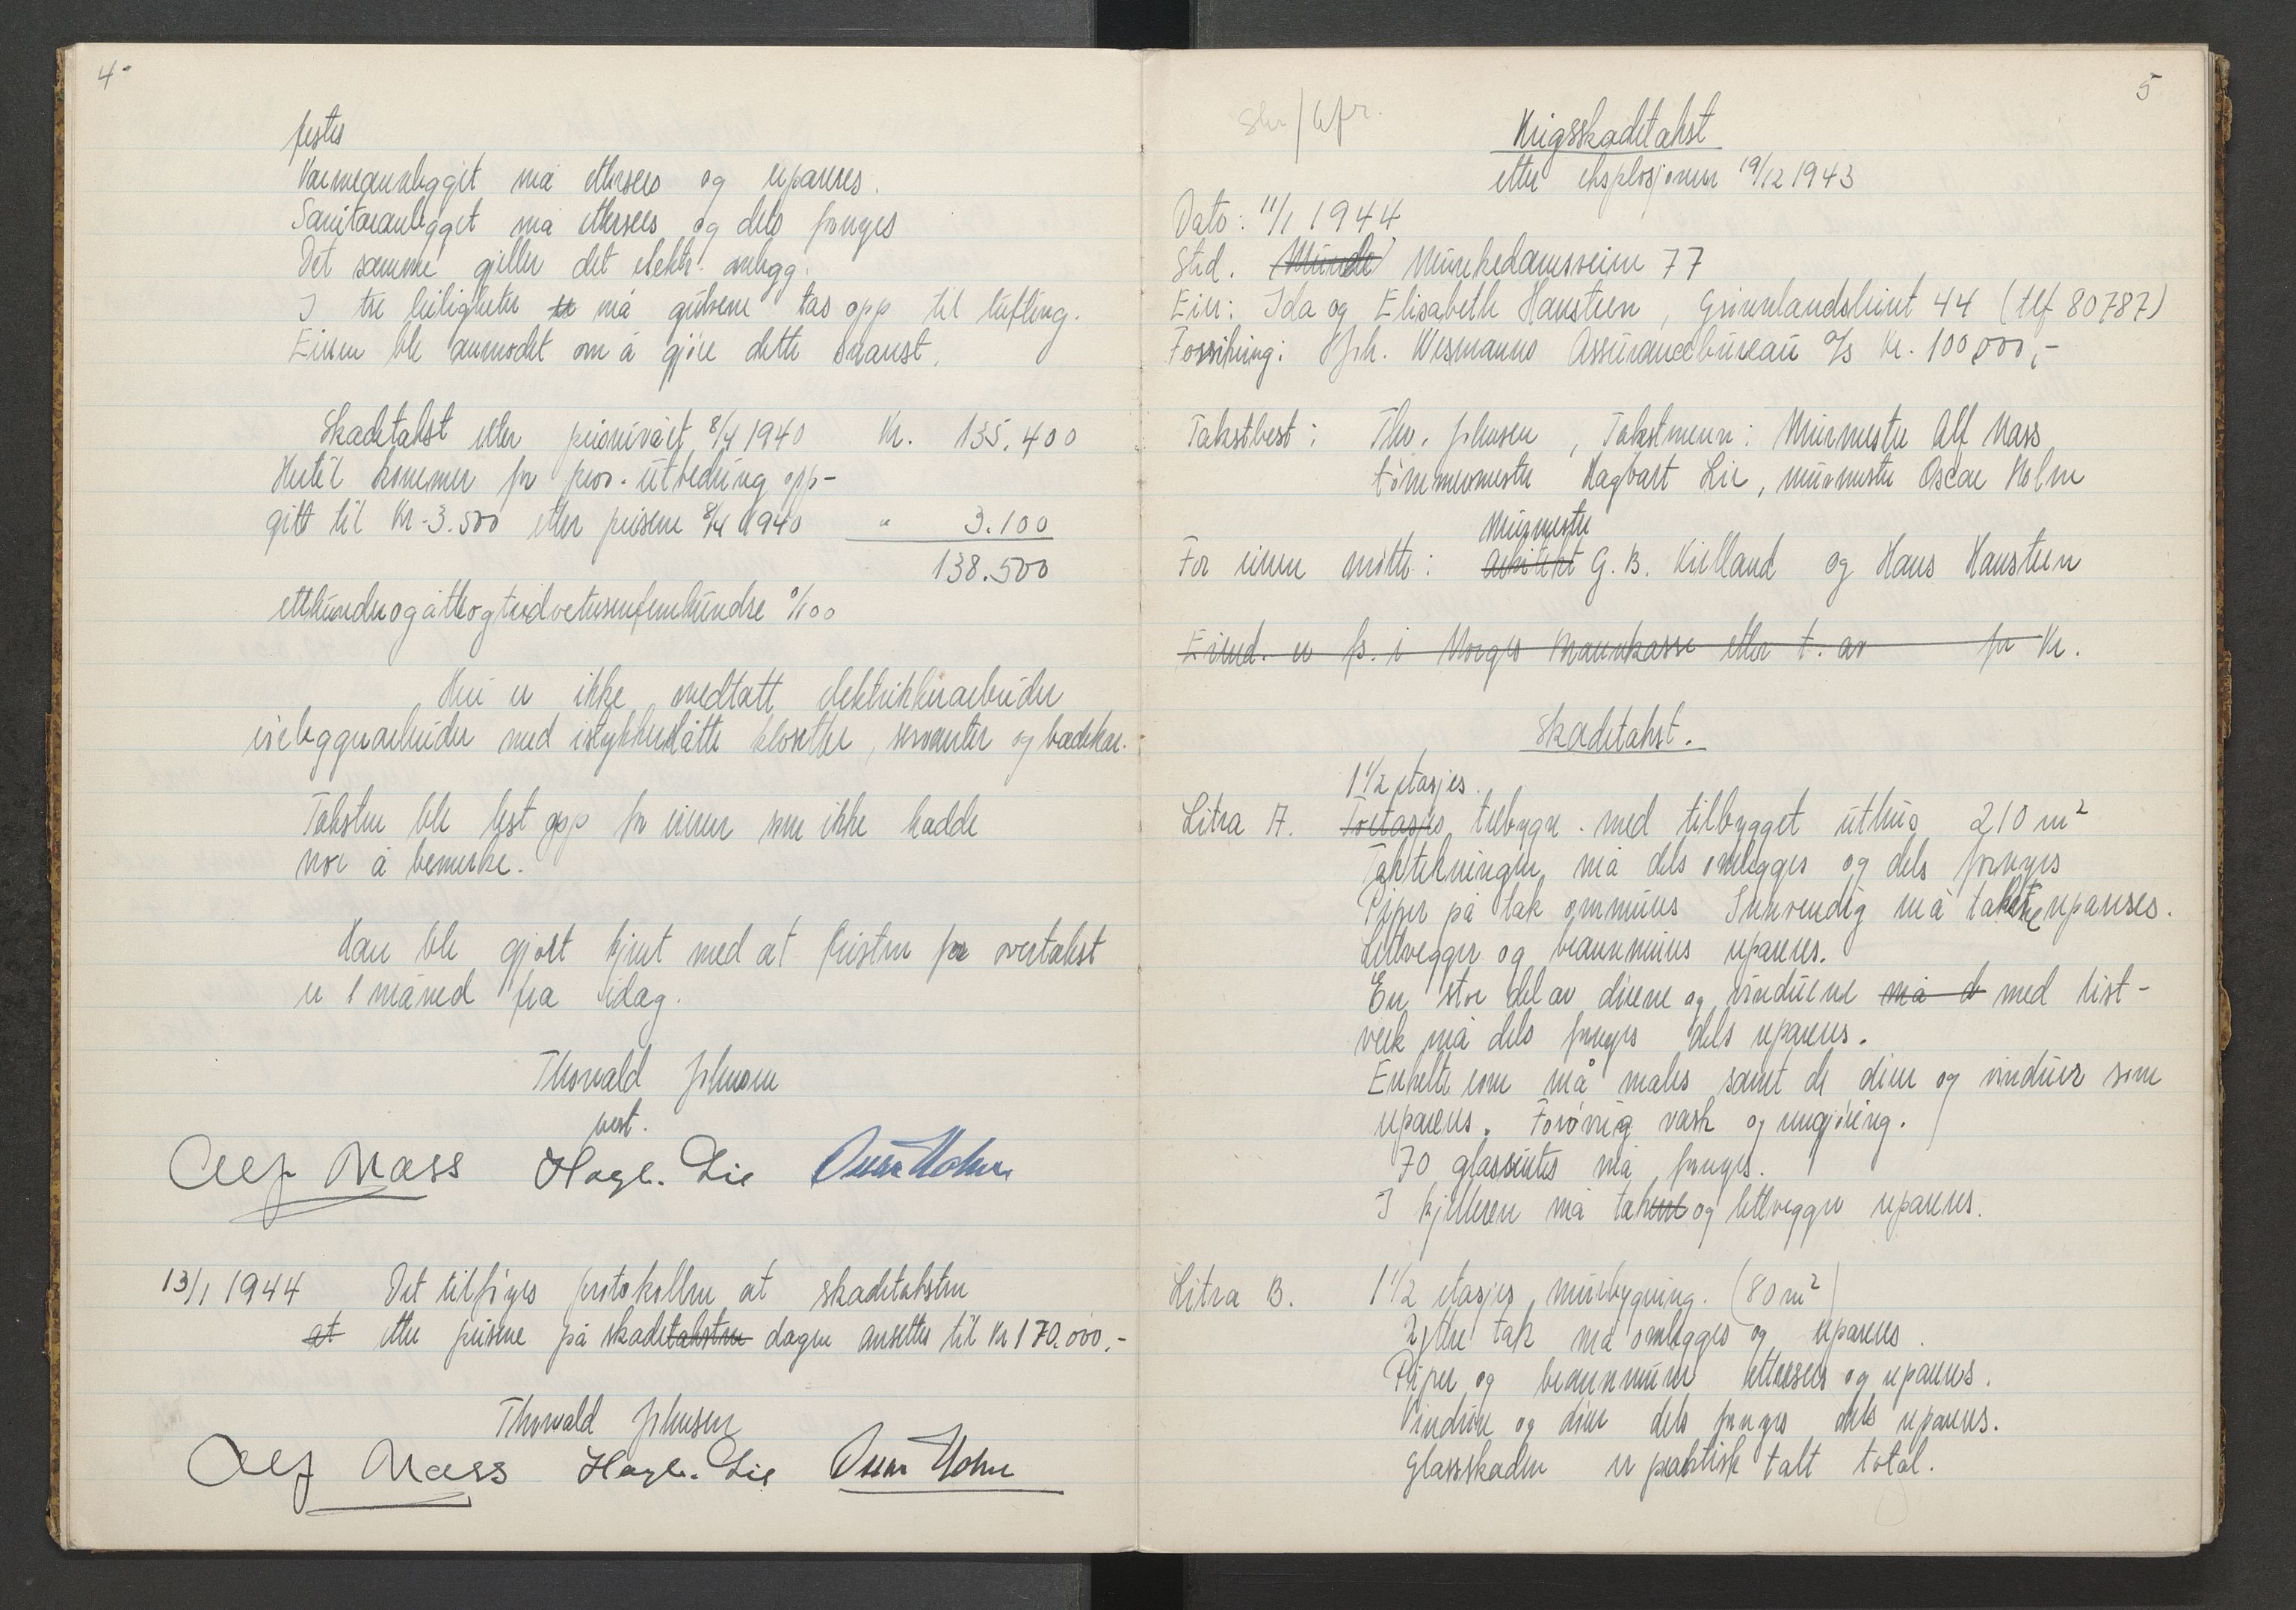 4
festes
Varmeanlegget må ettersees og repareres.
Sanitæranlegget må ettersees og dels fornyes
Det samme gjeller det elektr. anlegg.
I tre leiligheter må gulvene tas opp til lufting.
Eieren ble anmodet om å gjøre dette snarest.
Skadetakst etter prisnivået 8/4 1940 Kr. 135.400
Hertil kommer for prov. utbedring opp-
gitt til Kr. 3.500 etter prisene 8/4 1940 " 3.100
138.500
etthundreogåtteogtredvetusenfemhundre 0/100
Her er ikke medtatt elektrikerarbeider
rørleggerarbeider med istykkerslåtte klosetter, servanter og badekar.
Taksten ble lest opp for eieren som ikke hadde
noe å bemerke.
Han ble gjort kjent med at fristen for overtakst
er 1 måned fra idag.
Thorvald Johnsen
best.
Alf Næss Hagb. Lie Oscar Holm
13/1 1944 Det tilføyes protokollen at skadetaksten
at etter prisene på skadetaksten dagen ansettes til Kr 170.000.-
Thorvald Johnsen
Alf Næss Hagb. Lie Oscar Holm
5
Krigsskadetakst
etter eksplosjonen 19/12 1943
Dato: 11/1 1944
Sted. Munke Munkedamsveien 77
Eier: Ida og Elisabeth Hansteen, Grønnlandsleiret 44 (tlf 80787)
Forsikring: Joh. Wesmanns Assurancebureau A/S Kr. 100,000,-
Takstbest: Thv. Johnsen, Takstmenn: Murmester Alf Næss
tømmermester Hagbart Lie, murmester Oscar Holm
Murmester
For eieren møtte: Arkitekt G. B. Kielland og Hans Hansteen
Eiend. er fs. i Norges Brannkasse etter t. av for Kr.
Skadetakst.
1 1/2 etasjes.
Litra A. Toetasjes trebygn. med tilbygget uthus 210 m²
Taktekningen må dels omlegges og dels fornyes
Piper på tak ommures Innvendig må takene repareres.
Lettvegger og brannmurer repareres.
En stor del av dørene og vinduene må d med list-
verk må dels fornyes dels repareres.
Enkelte rom må males samt de dører og vinduer som
repareres. Forøvrig vask og rengjøring.
70 glassruter må fornyes.
I kjelleren må takene og lettvegger repareres.
Litra B. 1 1/2 etasjes murbygning. (80 m²)
Ytre tak må omlegges og repareres.
Piper og brannmurer ettersees og repareres.
Vinduer og dører dels fornyes dels repareres.
Glasskaden er praktisk talt total.